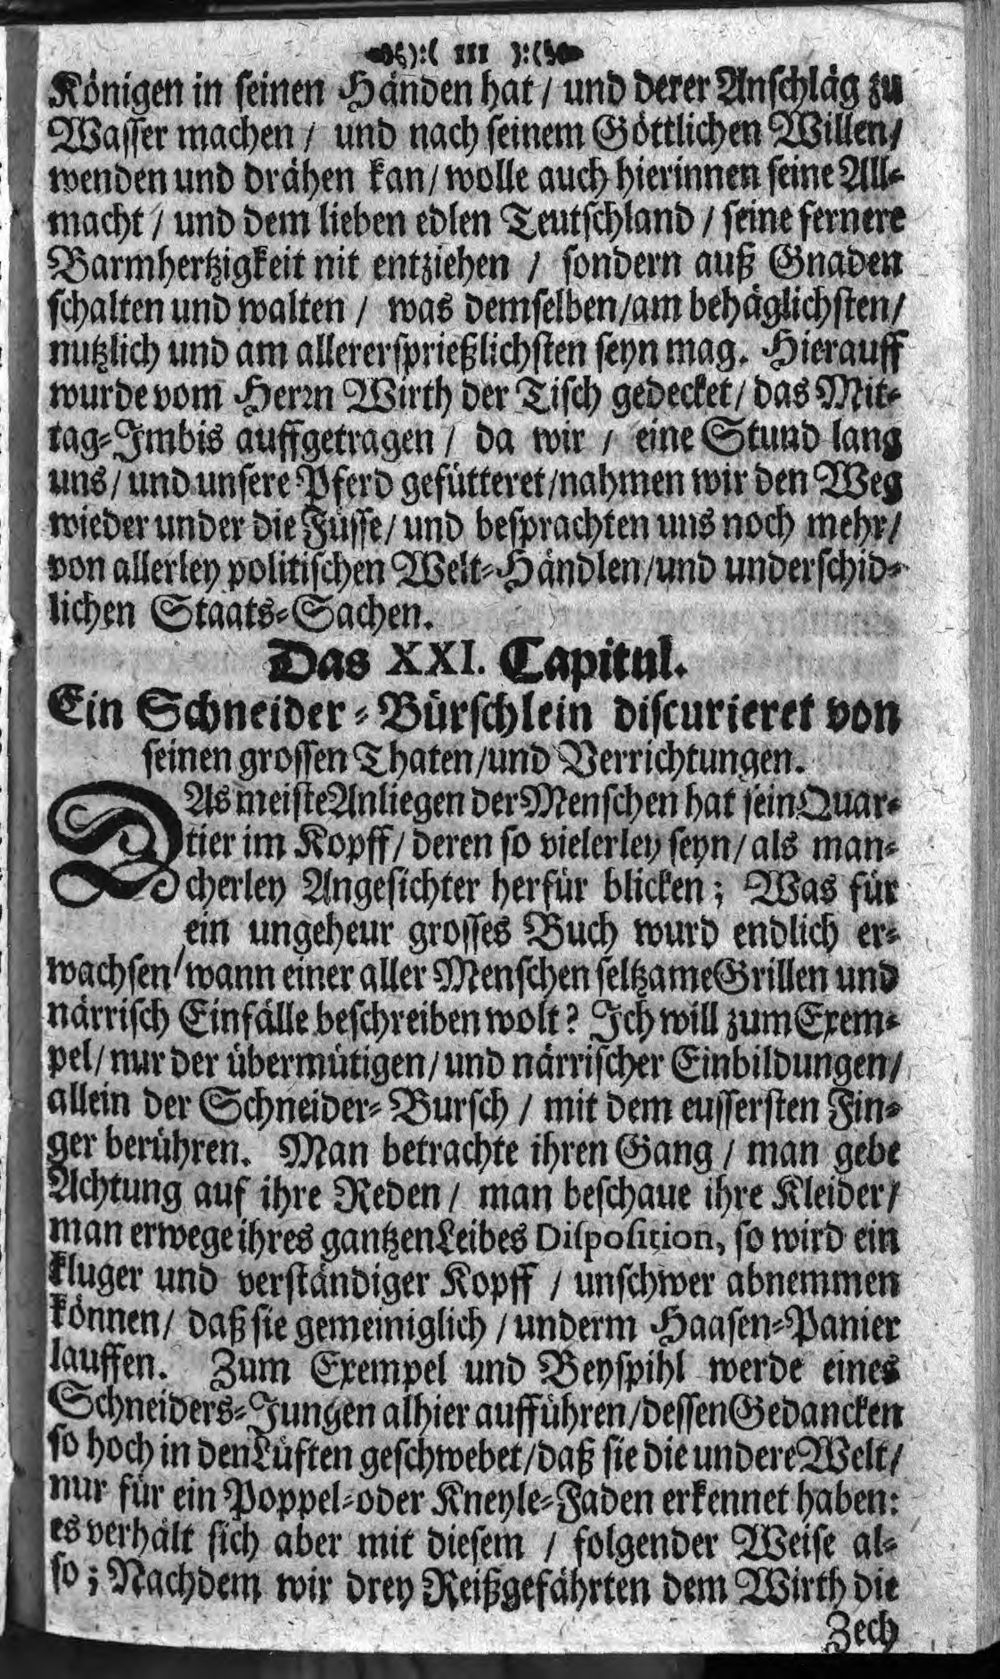 ):( 111 ):(
Königen in seinen Händen hat / und derer Anschläg zu
Wasser machen / und nach seinem Göttlichen Willen /
wenden und drähen kan / wolle auch hierinnen seine All-
macht / und dem lieben edlen Teutschland / seine fernere
Barmhertzigkeit nit entziehen / sondern auß Gnaden
schalten und walten / was demselben / am behäglichsten /
nutzlich und am allerersprießlichsten seyn mag. Hierauff
wurde vom Herrn Wirth der Tisch gedecket / das Mit-
tag-Imbis auffgetragen / da wir / eine Stund lang
uns / und unsere Pferd gefütteret / nahmen wir den Weg
wieder under die Füsse / und besprachten uns noch mehr /
von allerley politischen Welt-Händlen / und underschid-
lichen Staats-Sachen.
Das XXI. Capitul.
Ein Schneider-Bürschlein discurieret von
seinen grossen Thaten / und Verrichtungen.
DAs meiste Anliegen der Menschen hat sein Quar-
tier im Kopff / deren so vielerley seyn / als man-
cherley Angesichter herfür blicken; Was für
ein ungeheur grosses Buch wurd endlich er-
wachsen / wann einer aller Menschen seltzame Grillen und
närrisch Einfälle beschreiben wolt? Ich will zum Exem-
pel / nur der übermütigen / und närrischer Einbildungen /
allein der Schneider-Bursch / mit dem eussersten Fin-
ger berühren. Man betrachte ihren Gang / man gebe
Achtung auf ihre Reden / man beschaue ihre Kleider /
man erwege ihres gantzen Leibes Disposition, so wird ein
kluger und verständiger Kopff / unschwer abnemmen
können / daß sie gemeiniglich / underm Haasen-Panier
lauffen. Zum Exempel und Beyspihl werde eines
Schneiders-Jungen alhier aufführen / dessen Gedancken
so hoch in den Lüften geschwebet / daß sie die undere Welt /
nur für ein Poppel-oder Kneyle-Faden erkennet haben:
es verhält sich aber mit diesem / folgender Weise al-
so; Nachdem wir drey Reißgefährten dem Wirth die
Zech